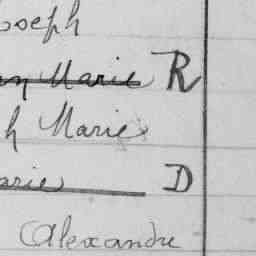 Joseph
Marie R
h Marie
arie D
Alexandre